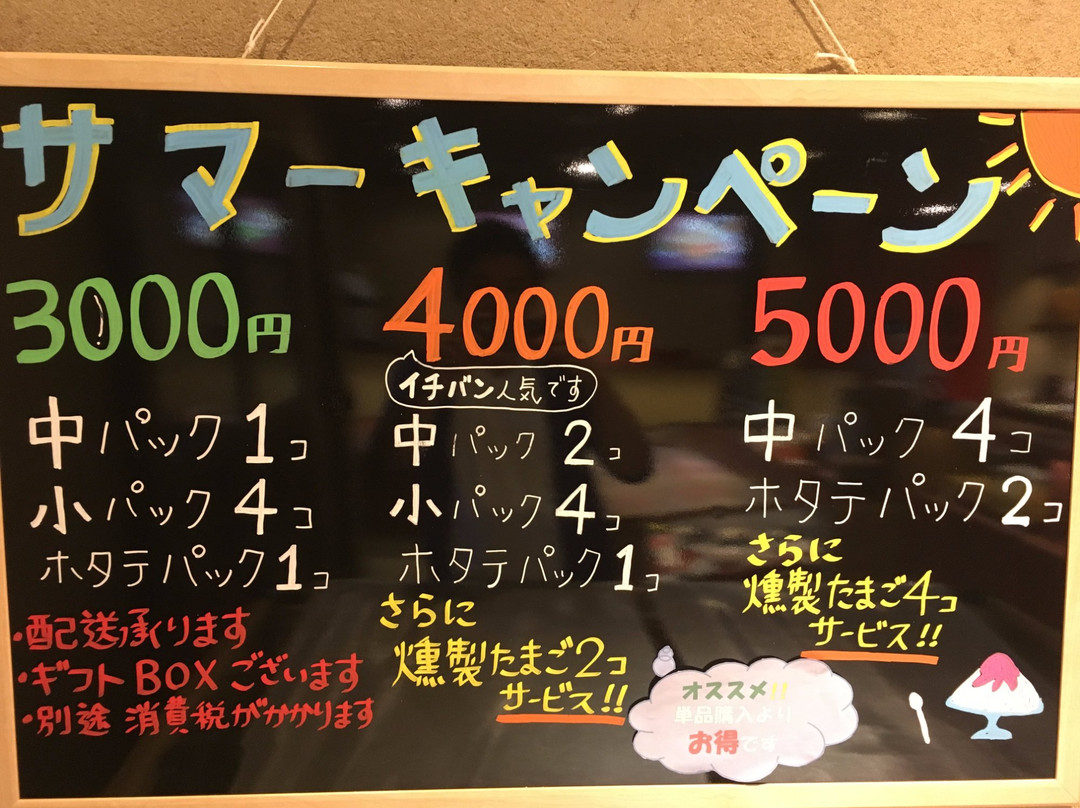 サマーキャンペーン
3000円
中パック1コ
小パック4コ
ホタテパック1コ
・配送承ります
・ギフトBOXございます
・別途 消費税がかかります
4000円
イチバン人気です
中パック2コ
小パック4コ
ホタテパック1コ
さらに
燻製たまご2コ
サービス!!
5000円
中パック4コ
ホタテパック2コ
さらに
燻製たまご4コ
サービス!!
オススメ!!
単品購入より
お得です